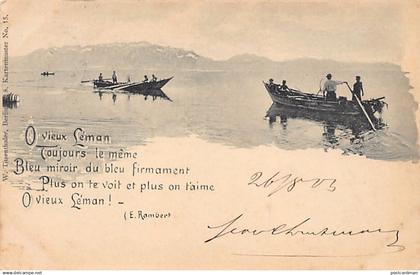 O vieux Léman
Toujours le même
Bleu miroir du bleu firmament
Plus on te voit et plus on t'aime
O vieux Léman! -
(E. Rambert
26/8 03
Kartenmuster No. 15.
postcardman